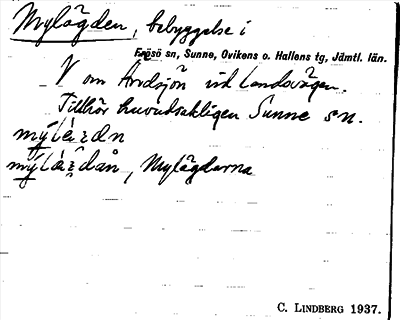 Mylägden, bebyggelse i
Frösö sn, Sunne, Ovikens o. Hallens tg, Jämtl. län.
V om Arvdsjön vid landsvägen.
Tillhör huvudsakligen Sunne sn.
Mylägdarna
C. LINDBERG 1937.